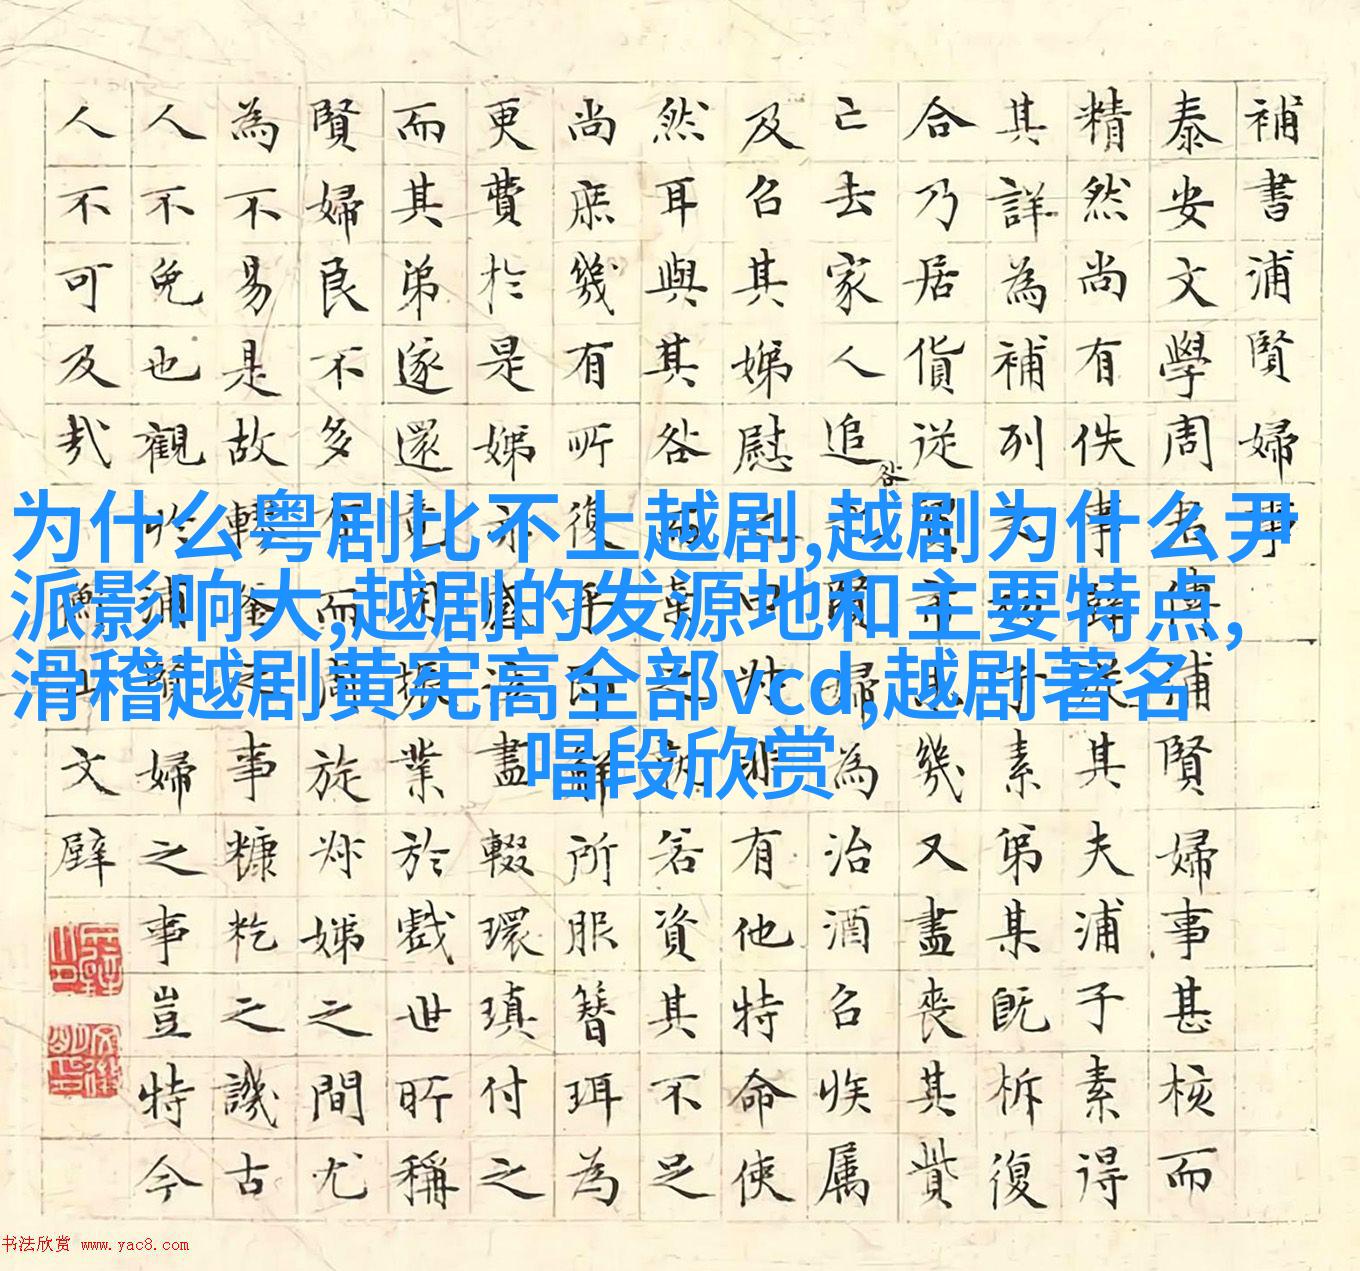 为什么粤剧比不上越剧,越剧为什么尹
派影响大,越剧的发源地和主要特点,
滑稽越剧黄宪高全部vcd,越剧著名
唱段欣赏
補書浦賢婦事
泰安文學周傳浦賢婦事甚核而
精然尚有佚事從其夫浦子素得
其詳為補列素弟某既析復
合乃居貨從幾又盡喪其貲
已去家人追歸為治酒召族属
及召其娣慰非有他特命使
然耳與其咎若資其不足
尚庶幾有所復鮮所服簪珥為
更費於是娣亦感盡輟環瑱付之
而其弟遂還業於戲世所稱
賢婦良不多而旋姒娣之間尤
為不易是故轑釜事糠籺之譏古
人不免也觀於浦賢婦之事豈特今
人不可及哉文壁
书法欣赏 www.yac8.com